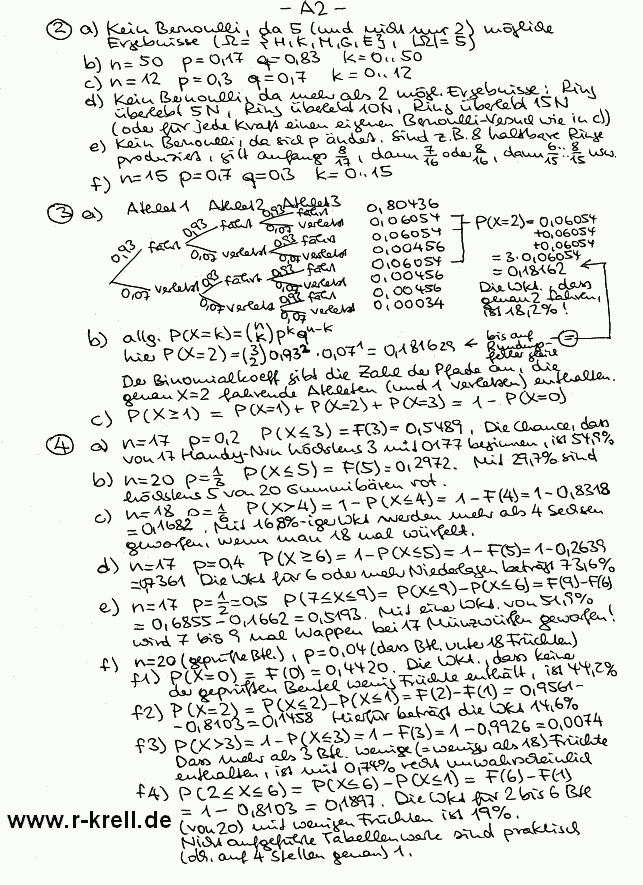 - A2 -
② a) Kein Bernoulli, da 5 (und nicht nur 2) mögliche
Ergebnisse (Ω = {H,K,M,G,E}, |Ω|=5)
b) n=50 p=0,17 q=0,83 k=0..50
c) n=12 p=0,3 q=0,7 k=0..12
d) Kein Bernoulli, da mehr als 2 mögl. Ergebnisse: Ring
überlebt 5N, Ring überlebt 10N, Ring überlebt 15N
(oder für jede Kraft einen eigenen Bernoulli-Versuch wie in c))
e) Kein Bernoulli, da sich p ändert. Sind z.B. 8 haltbare Ringe
produziert, gilt anfangs 8/17, dann 7/16 oder 8/16, dann 6/15..8/15 usw.
f) n=15 p=0,7 q=0,3 k=0..15
③ a) Athlet 1 Athlet 2 Athlet 3
0,93 fährt 0,93 fährt 0,93 fährt 0,80436
0,07 verletzt 0,06054
0,07 verletzt 0,93 fährt 0,06054
0,07 verletzt 0,00456
0,07 verletzt 0,93 fährt 0,93 fährt 0,06054
0,07 verletzt 0,00456
0,07 verletzt 0,93 fährt 0,00456
0,07 verletzt 0,00034
P(X=2)= 0,06054
+0,06054
+0,06054
= 3·0,06054
= 0,18162
Die Wkt., dass
genau 2 fahren,
ist 18,2%!
b) allg. P(X=k) = (n k) p^k q^n-k
hier P(X=2) = (3 2) 0,93² · 0,07¹ = 0,181629 ← bis auf Rundungsfehler gleich =
Der Binomialkoeff gibt die Zahl der Pfade an, die
genau X=2 fahrende Athleten (und 1 verletzen) enthalten.
c) P(X≥1) = P(X=1) + P(X=2) + P(X=3) = 1 - P(X=0)
④ a) n=17 p=0,2 P(X≤3) = F(3) = 0,5489. Die Chance, dass
von 17 Handy-Nrn höchstens 3 mit 0177 beginnen, ist 54,9%
b) n=20 p=1/3 P(X≤5) = F(5) = 0,2972. Mit 29,7% sind
höchstens 5 von 20 Gummibären rot.
c) n=18 p=1/6 P(X>4) = 1-P(X≤4) = 1-F(4) = 1-0,8318
= 0,1682. Mit 16,8%-iger Wkt werden mehr als 4 Sechsen
geworfen, wenn man 18 mal würfelt.
d) n=17 p=0,4 P(X≥6) = 1-P(X≤5) = 1-F(5) = 1-0,2639
=0,7361 Die Wkt für 6 oder mehr Niederlagen beträgt 73,6%
e) n=17 p=1/2=0,5 P(7≤X≤9) = P(X≤9)-P(X≤6) = F(9)-F(6)
= 0,6855-0,1662 = 0,5193. Mit einer Wkt. von 51,9%
wird 7 bis 9 mal Wappen bei 17 Münzwürfen geworfen!
f) n=20 (geprüfte Btl.), p=0,04 (dass Btl. unter 18 Früchten)
f1) P(X=0) = F(0) = 0,4420. Die Wkt., dass keiner
der geprüften Beutel wenig Früchte enthält, ist 44,2%
f2) P(X=2) = P(X≤2)-P(X≤1) = F(2)-F(1) = 0,9561-
-0,8103=0,1458 Hierfür beträgt die Wkt 14,6%
f3) P(X>3) = 1-P(X≤3) = 1-F(3) = 1-0,9926 = 0,0074
Dass mehr als 3 Btl. wenige (=weniger als 18) Früchte
enthalten, ist mit 0,74% recht unwahrscheinlich
f4) P(2≤X≤6) = P(X≤6)-P(X≤1) = F(6)-F(1)
= 1-0,8103 = 0,1897. Die Wkt für 2 bis 6 Btl
(von 20) mit wenigen Früchten ist 19%.
Nicht aufgeführte Tabellenwerte sind praktisch
(d.h. auf 4 Stellen genau) 1.
www.r-krell.de